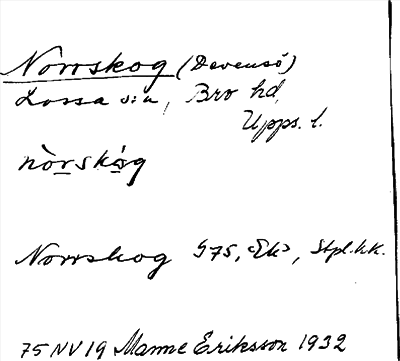 Norrskog (Devensö)
Lossa s:n, Bro hd,
Upps. l.
nòrskóg
Norrskog 975, <Ek>, Stpl.kk.
75 NV 19 Manne Eriksson 1932